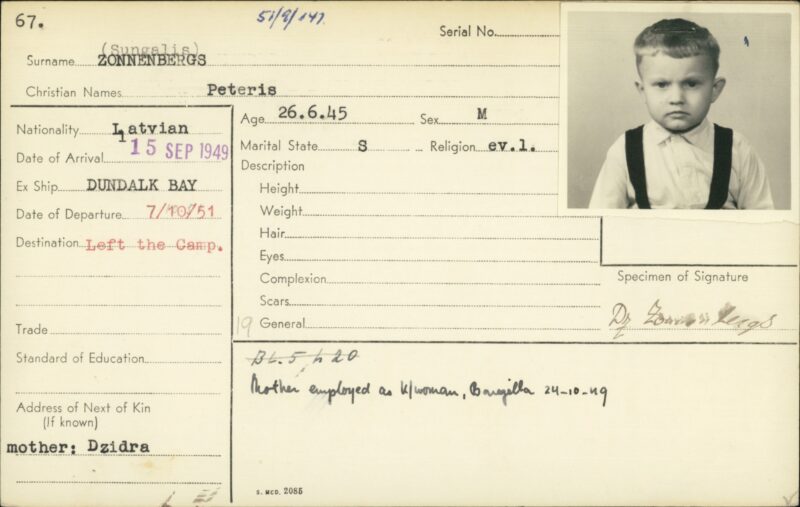 67.
51/9/147
Serial No.
(Sungalis)
Surname ZONNENBERGS
Christian Names Peteris
Nationality Latvian
Date of Arrival 15 SEP 1949
Ex Ship DUNDALK BAY
Date of Departure 7/10/51
Destination Left the Camp.
Trade
Standard of Education
Address of Next of Kin
(If known)
mother: Dzidra
Age 26.6.45 Sex M
Marital State S Religion ev.l.
Description
Height
Weight
Hair
Eyes
Complexion
Scars
19 General
Specimen of Signature
Dz Zonnenbergs
BL. 5, h 20
Mother employed as K/woman, Bonegilla 24-10-49
S. MCD. 2085